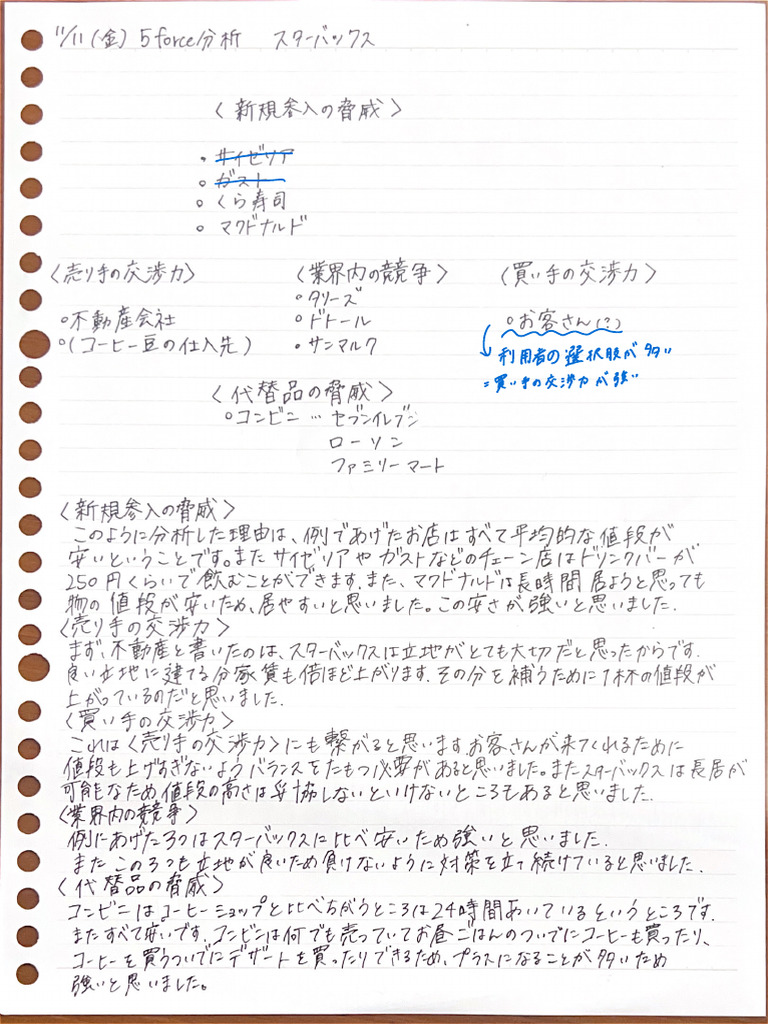 11/11(金) 5force分析 スターバックス
〈新規参入の脅威〉
・サイゼリア
・ガスト
・くら寿司
・マクドナルド
〈売り手の交渉力〉 〈業界内の競争〉 〈買い手の交渉力〉
・タリーズ
・不動産会社 ・ドトール ・お客さん(?)
・(コーヒー豆の仕入先) ・サンマルク
↓利用者の選択肢が多い
=買い手の交渉力が強い
〈代替品の脅威〉
・コンビニ…セブンイレブン
ローソン
ファミリーマート
〈新規参入の脅威〉
このように分析した理由は、例であげたお店はすべて平均的な値段が
安いということです。またサイゼリアやガストなどのチェーン店はドリンクバーが
250円くらいで飲むことができます。また、マクドナルドは長時間居ようと思っても
物の値段が安いため、居やすいと思いました。この安さが強いと思いました。
〈売り手の交渉力〉
まず、不動産と書いたのは、スターバックスは立地がとても大切だと思ったからです。
良い立地に建てる分家賃も倍ほど上がります。その分を補うために1杯の値段が
上がっているのだと思いました。
〈買い手の交渉力〉
これは〈売り手の交渉力〉にも繋がると思います。お客さんが来てくれるために
値段も上げすぎないようバランスをたもつ必要があると思いました。またスターバックスは長居が
可能なため値段の高さは妥協しないといけないところもあると思いました。
〈業界内の競争〉
例にあげた3つはスターバックスに比べ安いため強いと思いました。
またこの3つも立地が良いため負けないように対策を立て続けていると思いました。
〈代替品の脅威〉
コンビニはコーヒーショップと比べちがうところは24時間あいているというところです。
またすべて安いです。コンビニは何でも売っていてお昼ごはんのついでにコーヒーも買ったり、
コーヒーを買うついでにデザートを買ったりできるため、プラスになることが多いため
強いと思いました。